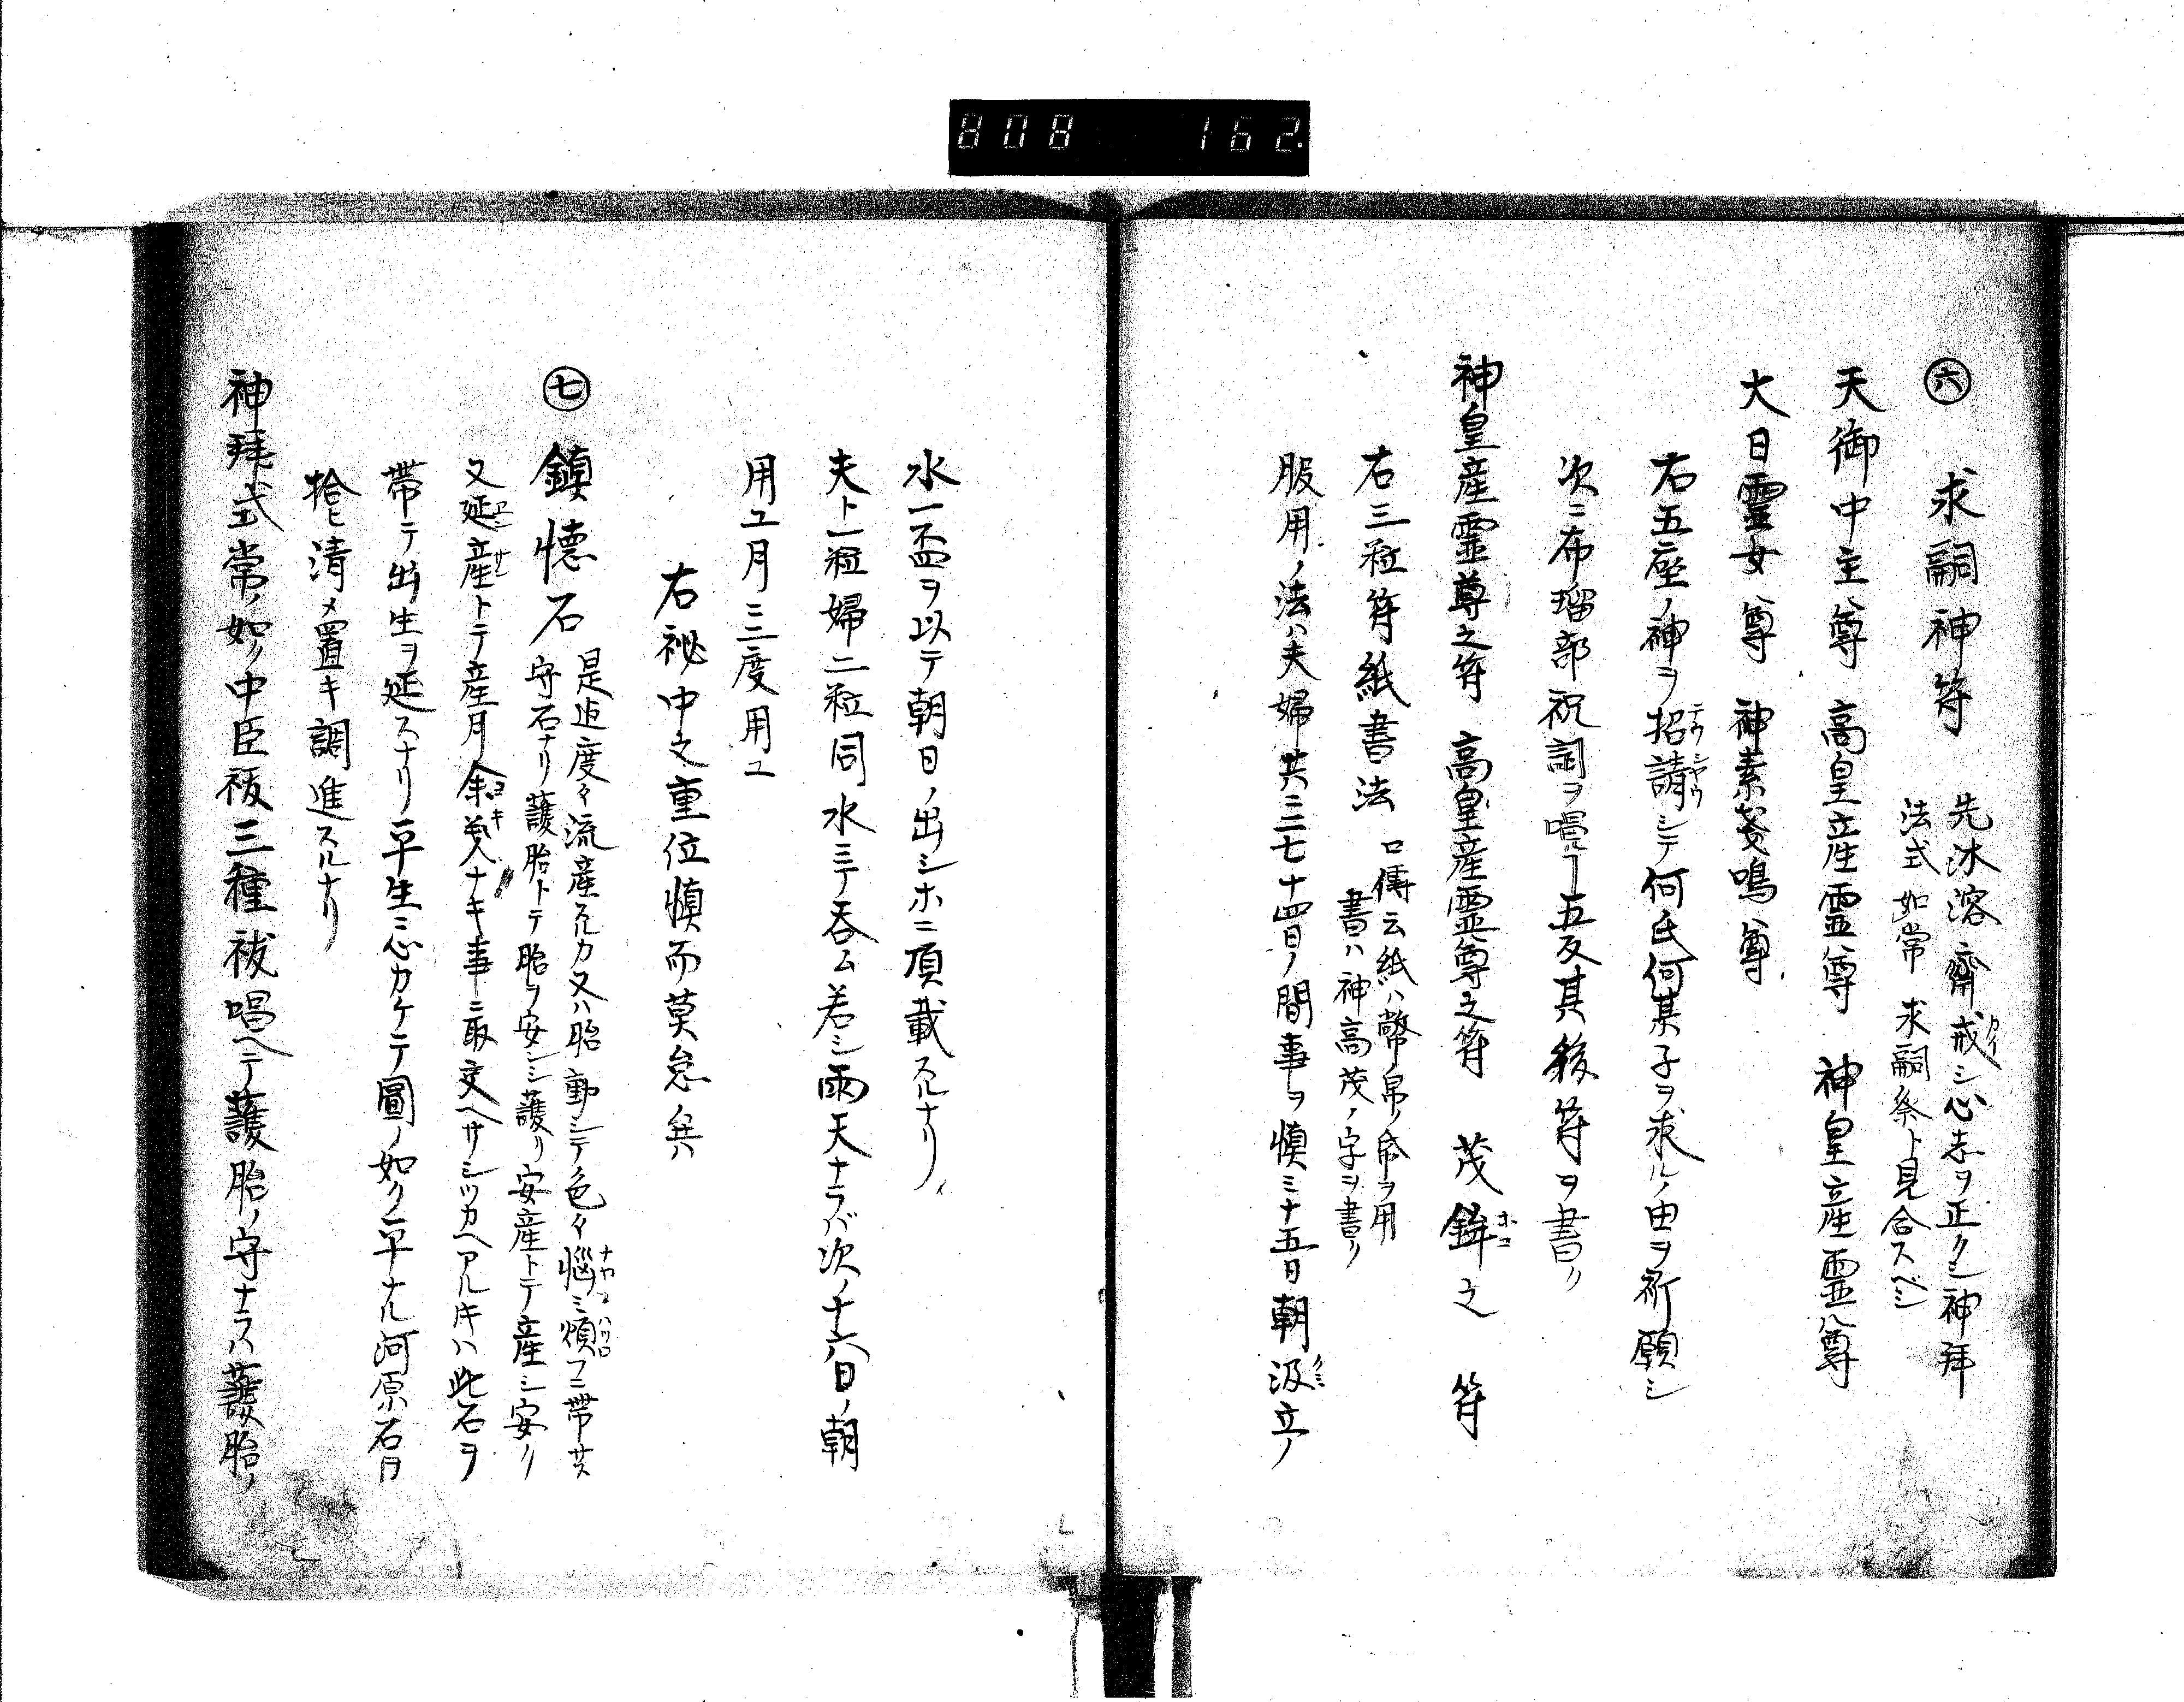 808 162.
㊅ 求嗣神符
先沐浴齋戒シ心志ヲ正クシ神拜
法式如常求嗣祭ト見合スベシ
天御中主尊 高皇産霊尊 神皇産霊尊
大日霊女尊 神素戔鳴尊
右五座ノ神ヲ招請シテ何氏何某子ヲ求ルノ由ヲ祈願シ
次ニ布瑠部祝詞ヲ唱フ五反其後符ヲ書ク
神皇産霊尊之符 高皇産霊尊之符 茂鉾之符
右三粒符紙書法
口傳云紙ハ幣帛ノ帋ヲ用
書ハ神高茂ノ字ヲ書ク
服用ノ法ハ夫婦共ニ二七十四日ノ間事ヲ慎ミ十五日朝汲立ノ
水一盃ヲ以テ朝日ノ出シホニ頂載スルナリ
夫ト一粒婦二粒同水ニテ呑ム若シ雨天ナラバ次ノ十六日ノ朝
用ユ月ニ三度用ユ
右祕中之重位慎而莫怠矣
㊆ 鎮懐石
是迠度々流産スルカ又ハ胎動シテ色々惱ミ煩フニ帯サス
守石ナリ護胎トテ胎ヲ安シシ護リ安産トテ産シ安ク
又延産トテ産月余義ナキ事ニ取交ヘサシツカヘアルキハ此石ヲ
帯テ出生ヲ延スナリ平生ニ心カケテ圖ノ如ク平ナル河原石ヲ
拾ヒ清メ置キ調進スルナリ
神拜式常ノ如ク中臣祓三種祓唱ヘテ護胎ノ守ナラハ護胎ノ